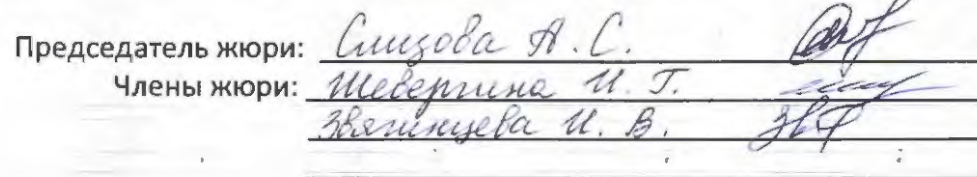 Председатель жюри: Слизова А. С.
Члены жюри: Шевергина И. Г.
Звягинцева И. В.